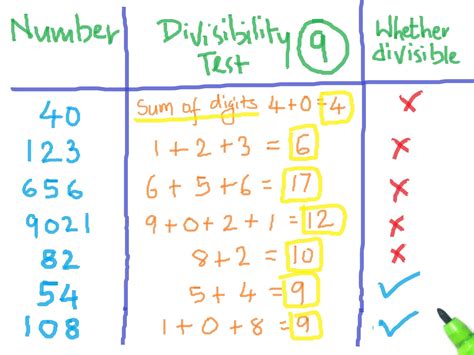 Number Divisibility Test 9 Whether divisible
40 Sum of digits 4+0=4 ✗
123 1+2+3=6 ✗
656 6+5+6=17 ✗
9021 9+0+2+1=12 ✗
82 8+2=10 ✗
54 5+4=9 ✓
108 1+0+8=9 ✓